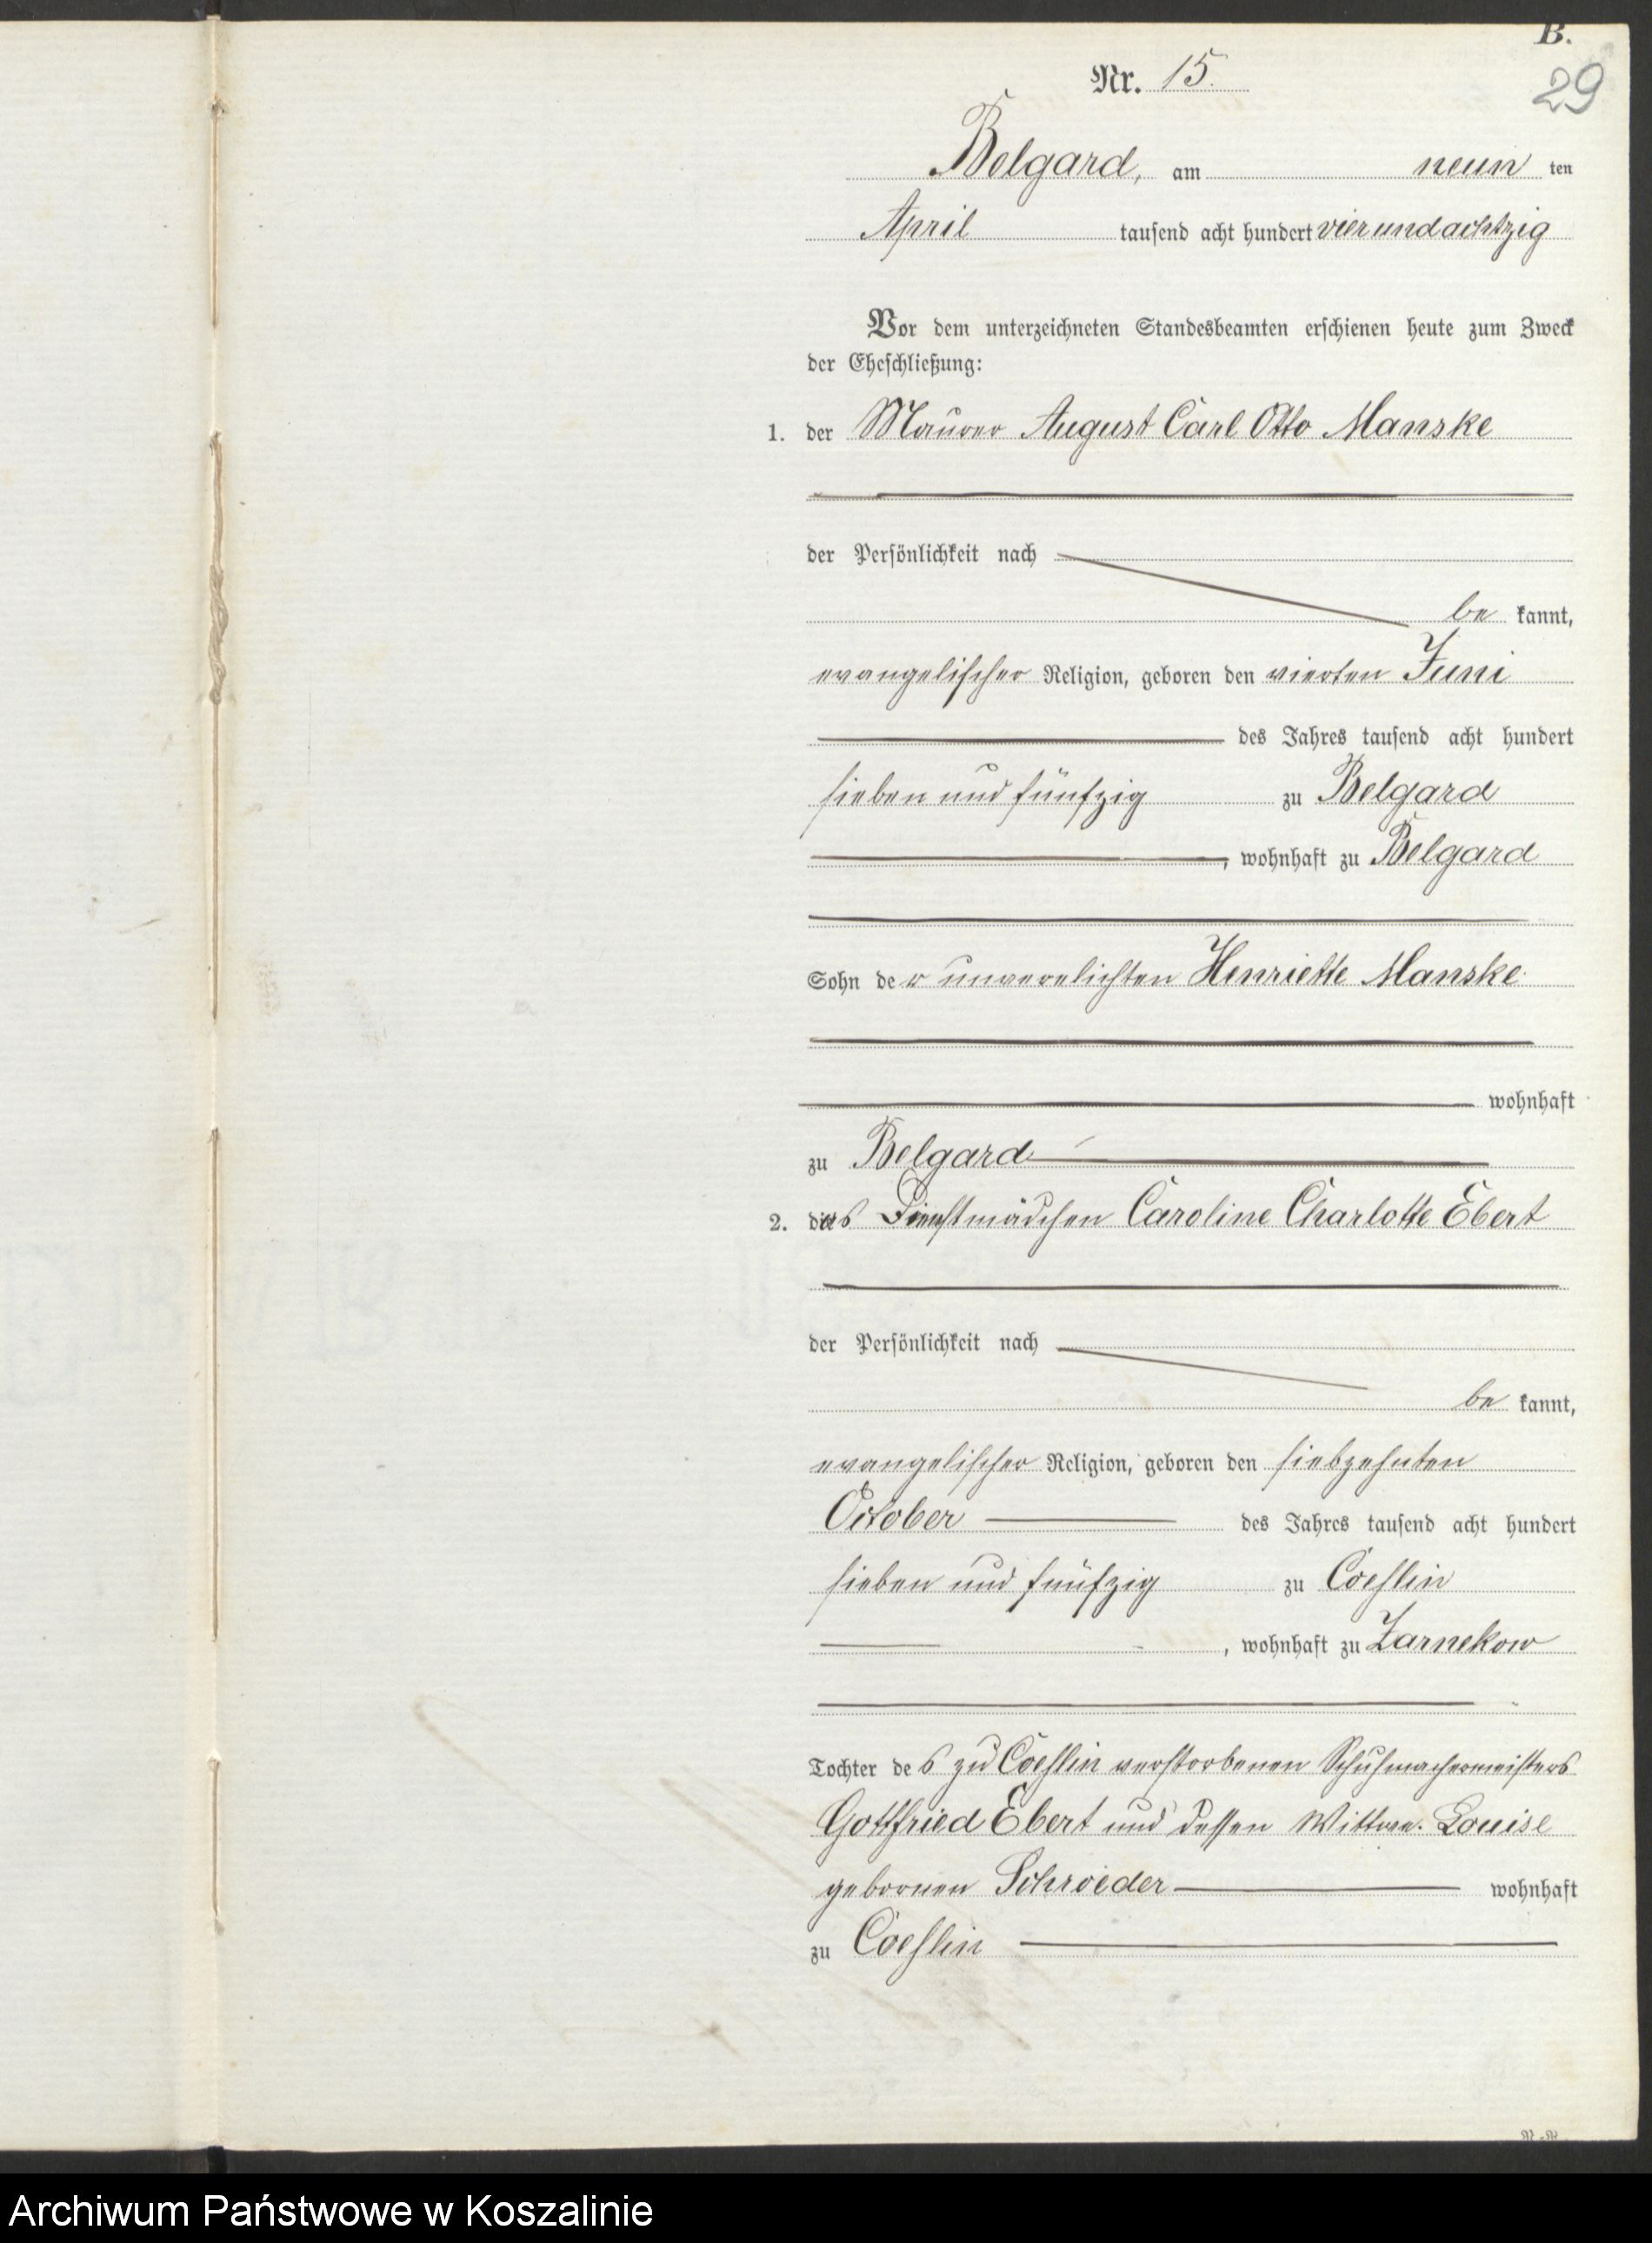 B.
29
Nr. 15.
Belgard, am neun ten
April tausend acht hundert vierundachtzig
Vor dem unterzeichneten Standesbeamten erschienen heute zum Zweck
der Eheschließung:
1. der Maurer August Carl Otto Manske
der Persönlichkeit nach
be kannt,
evangelischer Religion, geboren den vierten Juni
des Jahres tausend acht hundert
sieben und fünfzig zu Belgard
, wohnhaft zu Belgard
Sohn der unverelichten Henriette Manske
wohnhaft
zu Belgard
2. das Dienstmädchen Caroline Charlotte Ebert
der Persönlichkeit nach
be kannt,
evangelischer Religion, geboren den siebzehnten
October des Jahres tausend acht hundert
sieben und fünfzig zu Coeslin
, wohnhaft zu Zarnekow
Tochter des zu Coeslin verstorbenen Schuhmachermeisters
Gottfried Ebert und dessen Wittwe. Louise
gebornen Schroeder wohnhaft
zu Coeslin
Archiwum Państwowe w Koszalinie